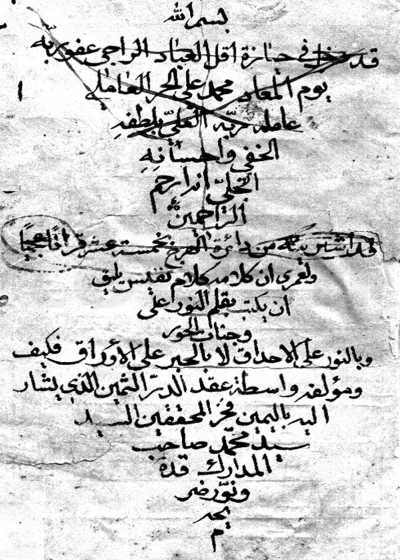 بسم الله
قد دخل في حيازة اقل العباد الراجي عفو ربه
يوم المعاد محمد علي الحر العاملي
عامله ربه العلي بلطفه
الخفي واحسانه
الجلي انه ارحم
الراحمين
قد اشتريته من بخمسة عشر قرانا عجميا
ولعمري ان كلامه كلام نفيس يليق
ان يكتب بقلم النور على
وجنات الحور
وبالنور على الاحداق لا بالحبر على الاوراق فكيف
ومؤلفه واسطة عقد الدر الثمين الذي يشار
اليه باليمين فخر المحققين السيد
سيد محمد صاحب
المدارك قده
ونور ضر
يحه
م